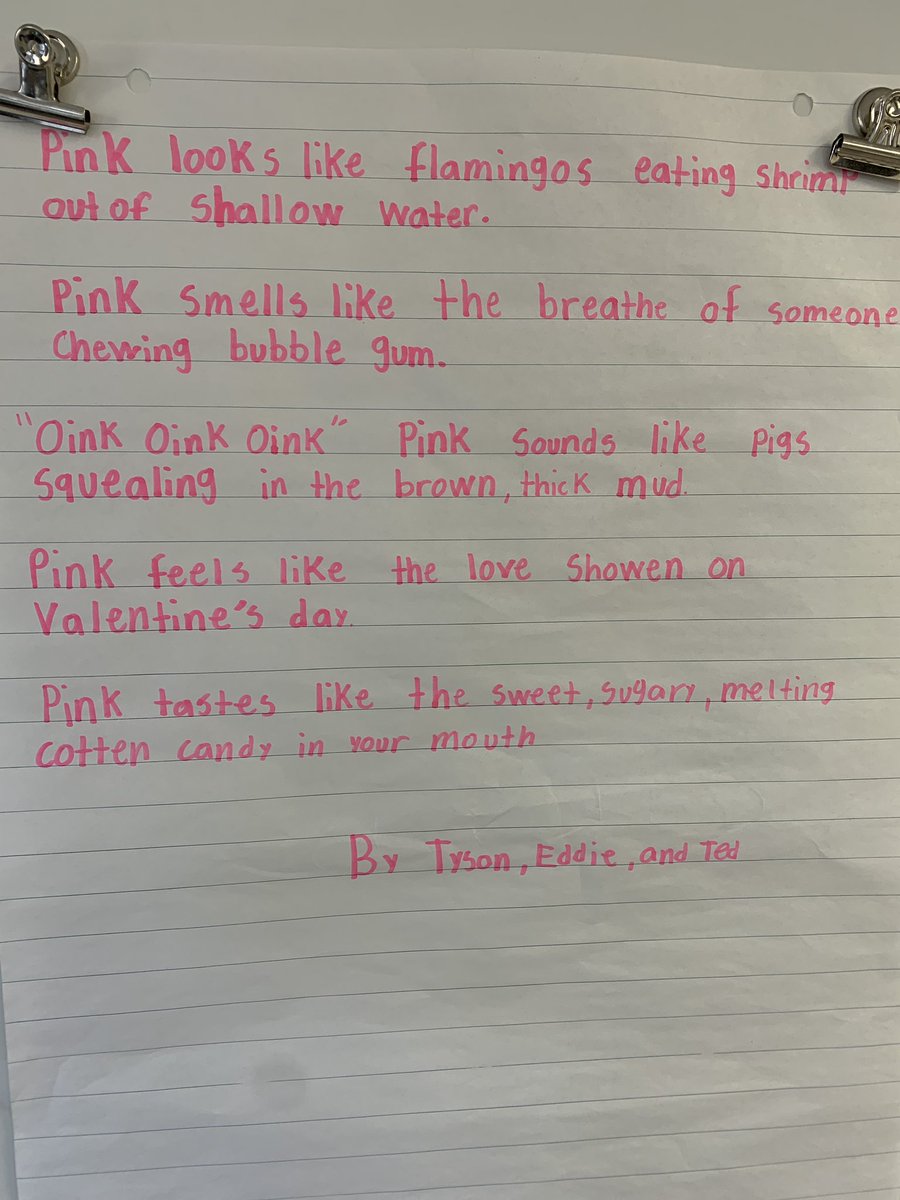 Pink looks like flamingos eating shrimp
out of shallow water.
Pink smells like the breathe of someone
chewing bubble gum.
"Oink Oink Oink" Pink sounds like pigs
squealing in the brown, thick mud.
Pink feels like the love showen on
Valentine's day.
Pink tastes like the sweet, sugary, melting
cotten candy in your mouth
By Tyson, Eddie, and Ted